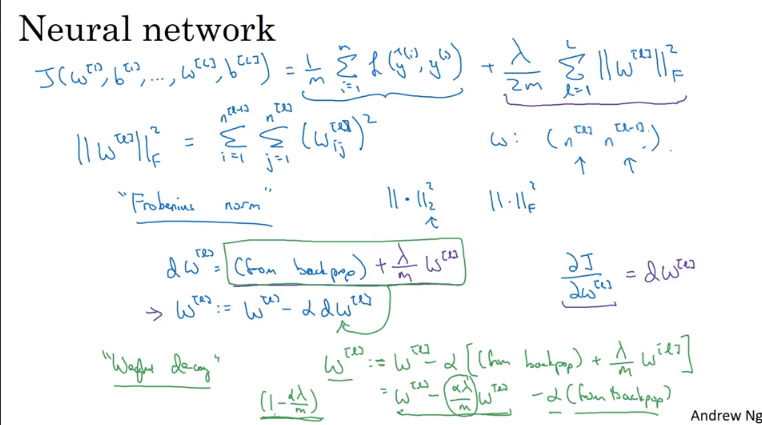 Neural network
J(w^[1], b^[1], ..., w^[L], b^[L]) = 1/m Σ_{i=1}^{m} L(ŷ^(i), y^(i)) + λ/2m Σ_{l=1}^{L} ||w^[l]||_F^2
||w^[l]||_F^2 = Σ_{i=1}^{n^[l-1]} Σ_{j=1}^{n^[l]} (w_ij^[l])^2 w: (n^[l] n^[l-1]).
"Frobenius norm" ||·||_2^2 ||·||_F^2
↑
dw^[l] = (from backprop) + λ/m w^[l] ∂J/∂w^[l] = dw^[l]
→ w^[l] := w^[l] - α dw^[l]
"Weight decay" w^[l] := w^[l] - α [(from backprop) + λ/m w^[l]]
(1 - αλ/m) = w^[l] - (αλ/m) w^[l] - α (from backprop)
Andrew Ng